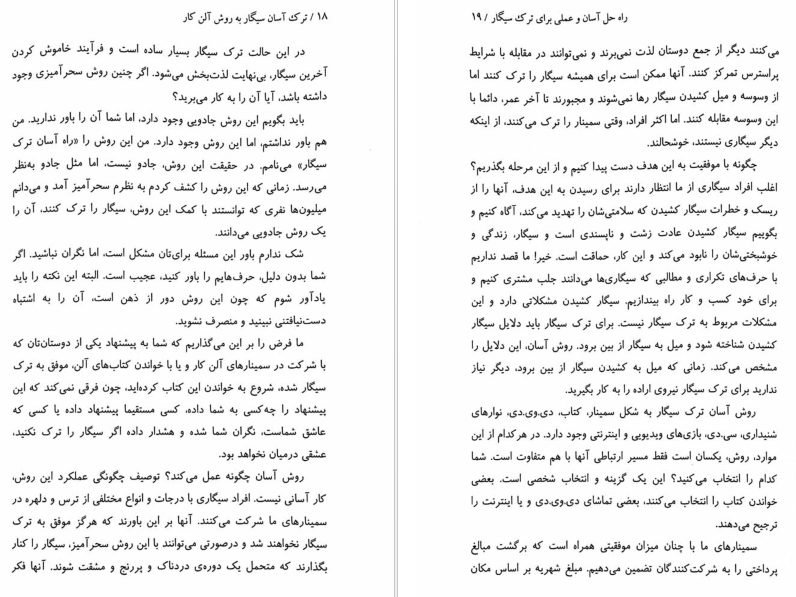 ۱۸ / ترک آسان سیگار به روش آلن کار
در این حالت ترک سیگار بسیار ساده است و فرآیند خاموش کردن
آخرین سیگار، بی‌نهایت لذت‌بخش می‌شود. اگر چنین روش سحرآمیزی وجود
داشته باشد، آیا آن را به کار می‌برید؟
باید بگویم این روش جادویی وجود دارد، اما شما آن را باور ندارید. من
هم باور نداشتم، اما این روش وجود دارد. من این روش را «راه آسان ترک
سیگار» می‌نامم. در حقیقت این روش، جادو نیست، اما مثل جادو به‌نظر
می‌رسد. زمانی که این روش را کشف کردم به نظرم سحرآمیز آمد و می‌دانم
میلیون‌ها نفری که توانستند با کمک این روش، سیگار را ترک کنند، آن را
یک روش جادویی می‌دانند.
شک ندارم باور این مسئله برای‌تان مشکل است، اما نگران نباشید. اگر
شما بدون دلیل، حرف‌هایم را باور کنید، عجیب است. البته این نکته را باید
یادآور شوم که چون این روش دور از ذهن است، آن را به اشتباه
دست‌نیافتنی نبینید و منصرف نشوید.
ما فرض را بر این می‌گذاریم که شما به پیشنهاد یکی از دوستان‌تان که
با شرکت در سمینارهای آلن کار و یا با خواندن کتاب‌های آلن، موفق به ترک
سیگار شده، شروع به خواندن این کتاب کرده‌اید، چون فرقی نمی‌کند که این
پیشنهاد را چه‌کسی به شما داده، کسی مستقیما پیشنهاد داده یا کسی که
عاشق شماست، نگران شما شده و هشدار داده اگر سیگار را ترک نکنید،
عشقی درمیان نخواهد بود.
روش آسان چگونه عمل می‌کند؟ توصیف چگونگی عملکرد این روش،
کار آسانی نیست. افراد سیگاری با درجات و انواع مختلفی از ترس و دلهره در
سمینارهای ما شرکت می‌کنند. آنها بر این باورند که هرگز موفق به ترک
سیگار نخواهند شد و درصورتی می‌توانند با این روش سحرآمیز، سیگار را کنار
بگذارند که متحمل یک دوره‌ی دردناک و پررنج و مشقت شوند. آنها فکر
راه حل آسان و عملی برای ترک سیگار / ۱۹
می‌کنند دیگر از جمع دوستان لذت نمی‌برند و نمی‌توانند در مقابله با شرایط
پراسترس تمرکز کنند. آنها ممکن است برای همیشه سیگار را ترک کنند اما
از وسوسه و میل کشیدن سیگار رها نمی‌شوند و مجبورند تا آخر عمر، دائما با
این وسوسه مقابله کنند. اما اکثر افراد، وقتی سمینار را ترک می‌کنند، از اینکه
دیگر سیگاری نیستند، خوشحالند.
چگونه با موفقیت به این هدف دست پیدا کنیم و از این مرحله بگذریم؟
اغلب افراد سیگاری از ما انتظار دارند برای رسیدن به این هدف، آنها را از
ریسک و خطرات سیگار کشیدن که سلامتی‌شان را تهدید می‌کند، آگاه کنیم و
بگوییم سیگار کشیدن عادت زشت و ناپسندی است و سیگار، زندگی و
خوشبختی‌شان را نابود می‌کند و این کار، حماقت است. خیر! ما قصد نداریم
با حرف‌های تکراری و مطالبی که سیگاری‌ها می‌دانند جلب مشتری کنیم و
برای خود کسب و کار راه بیندازیم. سیگار کشیدن مشکلاتی دارد و این
مشکلات مربوط به ترک سیگار نیست. برای ترک سیگار باید دلایل سیگار
کشیدن شناخته شود و میل به سیگار از بین برود. روش آسان، این دلایل را
مشخص می‌کند. زمانی که میل به کشیدن سیگار از بین برود، دیگر نیاز
ندارید برای ترک سیگار نیروی اراده را به کار بگیرید.
روش آسان ترک سیگار به شکل سمینار، کتاب، دی.وی.دی، نوارهای
شنیداری، سی.دی، بازی‌های ویدیویی و اینترنتی وجود دارد. در هرکدام از این
موارد، روش، یکسان است فقط مسیر ارتباطی آنها با هم متفاوت است. شما
کدام را انتخاب می‌کنید؟ این یک گزینه و انتخاب شخصی است. بعضی
خواندن کتاب را انتخاب می‌کنند، بعضی تماشای دی.وی.دی و یا اینترنت را
ترجیح می‌دهند.
سمینارهای ما با چنان میزان موفقیتی همراه است که برگشت مبالغ
پرداختی را به شرکت‌کنندگان تضمین می‌دهیم. مبلغ شهریه بر اساس مکان